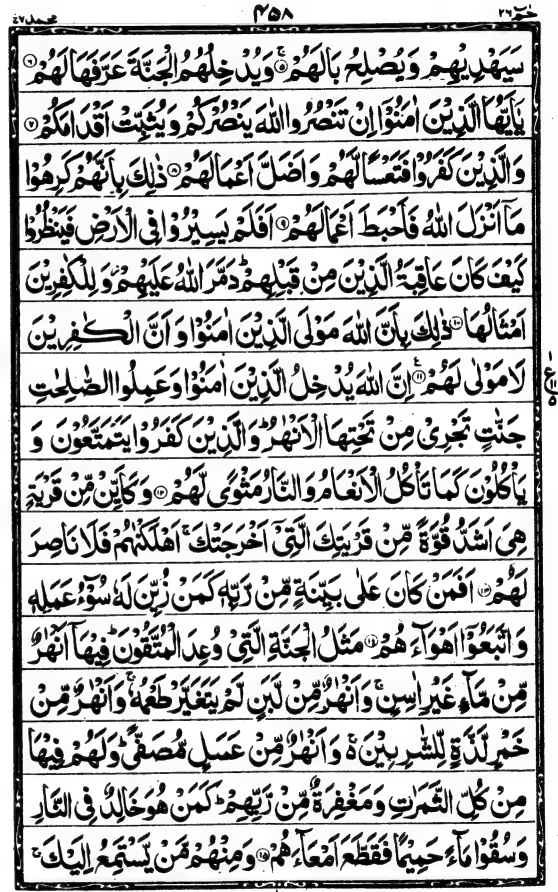 محمد ٤٧ ٤٥٨ حٰمٓ ٢٦
سَيَهْدِيْهِمْ وَيُصْلِحُ بَالَهُمْ ۚ‏﴿۵﴾ وَيُدْخِلُهُمُ الْجَنَّةَ عَرَّفَهَا لَهُمْ ﴿۶﴾
يٰۤاَيُّهَا الَّذِيْنَ اٰمَنُوْۤا اِنْ تَنْصُرُوا اللّٰهَ يَنْصُرْكُمْ وَيُثَبِّتْ اَقْدَامَكُمْ ﴿۷﴾
وَالَّذِيْنَ كَفَرُوْا فَتَعْسًا لَّهُمْ وَاَضَلَّ اَعْمَالَهُمْ ﴿۸﴾ ذٰلِكَ بِاَنَّهُمْ كَرِهُوْا
مَاۤ اَنْزَلَ اللّٰهُ فَاَحْبَطَ اَعْمَالَهُمْ ﴿۹﴾ اَفَلَمْ يَسِيْرُوْا فِى الْاَرْضِ فَيَنْظُرُوْا
كَيْفَ كَانَ عَاقِبَةُ الَّذِيْنَ مِنْ قَبْلِهِمْ ؕ دَمَّرَ اللّٰهُ عَلَيْهِمْ ؗ وَلِلْكٰفِرِيْنَ
اَمْثَالُهَا ﴿۱۰﴾ ذٰلِكَ بِاَنَّ اللّٰهَ مَوْلَى الَّذِيْنَ اٰمَنُوْا وَاَنَّ الْكٰفِرِيْنَ
لَا مَوْلٰى لَهُمْ ﴿۱۱﴾ اِنَّ اللّٰهَ يُدْخِلُ الَّذِيْنَ اٰمَنُوْا وَعَمِلُوا الصّٰلِحٰتِ
جَنّٰتٍ تَجْرِىْ مِنْ تَحْتِهَا الْاَنْهٰرُ ؕ وَالَّذِيْنَ كَفَرُوْا يَتَمَتَّعُوْنَ وَ
يَاْكُلُوْنَ كَمَا تَاْكُلُ الْاَنْعَامُ وَالنَّارُ مَثْوًى لَّهُمْ ﴿۱۲﴾ وَكَاَيِّنْ مِّنْ قَرْيَةٍ
هِىَ اَشَدُّ قُوَّةً مِّنْ قَرْيَتِكَ الَّتِىْۤ اَخْرَجَتْكَ ۚ اَهْلَكْنٰهُمْ فَلَا نَاصِرَ
لَهُمْ ﴿۱۳﴾ اَفَمَنْ كَانَ عَلٰى بَيِّنَةٍ مِّنْ رَّبِّهٖ كَمَنْ زُيِّنَ لَهٗ سُوْٓءُ عَمَلِهٖ
وَاتَّبَعُوْۤا اَهْوَآءَهُمْ ﴿۱۴﴾ مَثَلُ الْجَنَّةِ الَّتِىْ وُعِدَ الْمُتَّقُوْنَ ؕ فِيْهَاۤ اَنْهٰرٌ
مِّنْ مَّآءٍ غَيْرِ اٰسِنٍ ۚ وَاَنْهٰرٌ مِّنْ لَّبَنٍ لَّمْ يَتَغَيَّرْ طَعْمُهٗ ۚ وَاَنْهٰرٌ مِّنْ
خَمْرٍ لَّذَّةٍ لِّلشّٰرِبِيْنَ ۚ وَاَنْهٰرٌ مِّنْ عَسَلٍ مُّصَفًّى ؕ وَلَهُمْ فِيْهَا
مِنْ كُلِّ الثَّمَرٰتِ وَمَغْفِرَةٌ مِّنْ رَّبِّهِمْ ؕ كَمَنْ هُوَ خَالِدٌ فِى النَّارِ
وَسُقُوْا مَآءً حَمِيْمًا فَقَطَّعَ اَمْعَآءَهُمْ ﴿۱۵﴾ وَمِنْهُمْ مَّنْ يَّسْتَمِعُ اِلَيْكَ ۚ